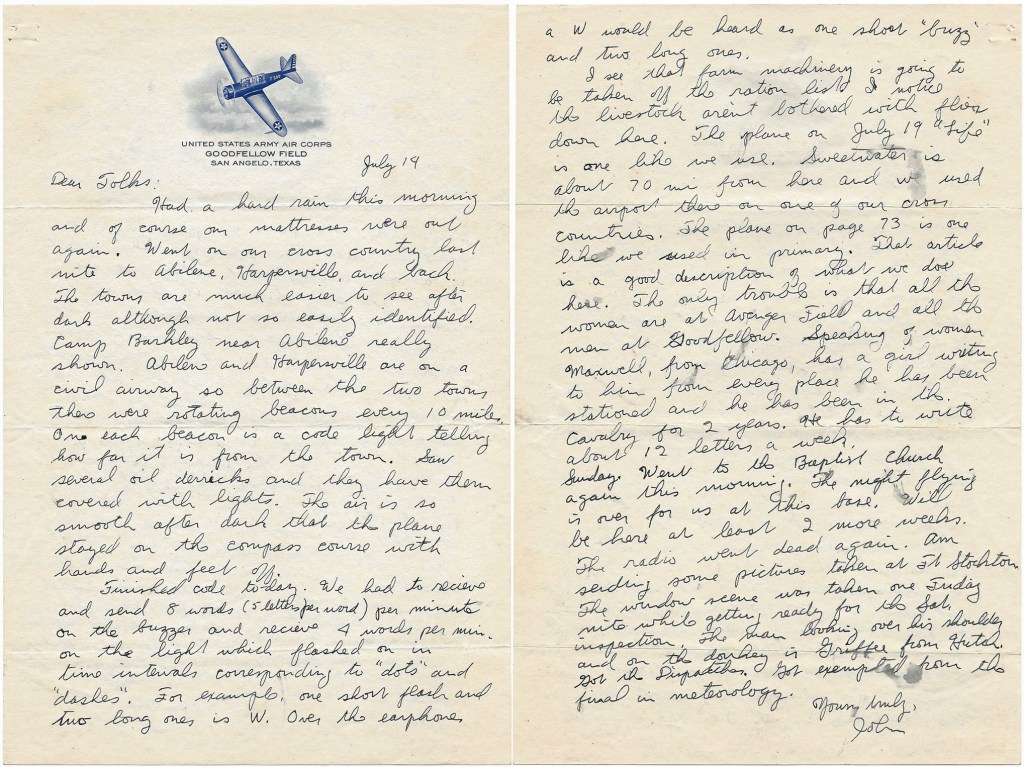 UNITED STATES ARMY AIR CORPS
GOODFELLOW FIELD
SAN ANGELO, TEXAS
July 19
Dear Folks:
Had a hard rain this morning
and of course our mattresses were out
again. Went on our cross country last
nite to Abilene, Harpersville, and back.
The towns are much easier to see after
dark although not so easily identified.
Camp Barkley near Abilene really
shown. Abilene and Harpersville are on a
civil airway so between the two towns
there were rotating beacons every 10 miles.
One each beacon is a code light telling
how far it is from the town. Saw
several oil derricks and they have them
covered with lights. The air is so
smooth after dark that the plane
stayed on the compass course with
hands and feet off.
Finished code to-day. We had to recieve
and send 8 words (5 letters per word) per minute
on the buzzer and recieve 4 words per min.
on the light which flashed on in
time intervals corresponding to "dots" and
"dashes". For example, one short flash and
two long ones is W. Over the earphones
a W would be heard as one short "buzz"
and two long ones.
I see that farm machinery is going to
be taken off the ration list. I notice
the livestock aren't bothered with flies
down here. The plane on July 19 "Life"
is one like we use. Sweetwater is
about 70 mi from here and we used
the airport there on one of our cross
countries. The plane on page 73 is one
like we used in primary. That article
is a good description of what we do
here. The only trouble is that all the
women are at Avenger Field and all the
men at Goodfellow. Speaking of women
Maxwell, from Chicago, has a girl writing
to him from every place he has been
stationed and he has been in the
Cavalry for 2 years. He has to write
about 12 letters a week.
Sunday. Went to the Baptist Church
again this morning. The night flying
is over for us at this base. Will
be here at least 2 more weeks.
The radio went dead again. Am
sending some pictures taken at Ft Stockton
The window scene was taken one Friday
nite while getting ready for the Sat.
inspection. The man looking over his shoulder
and on the donkey is Griffee from Hutch.
Got the Dispatches. Got exempted from the
final in meteorology.
Yours truly,
John